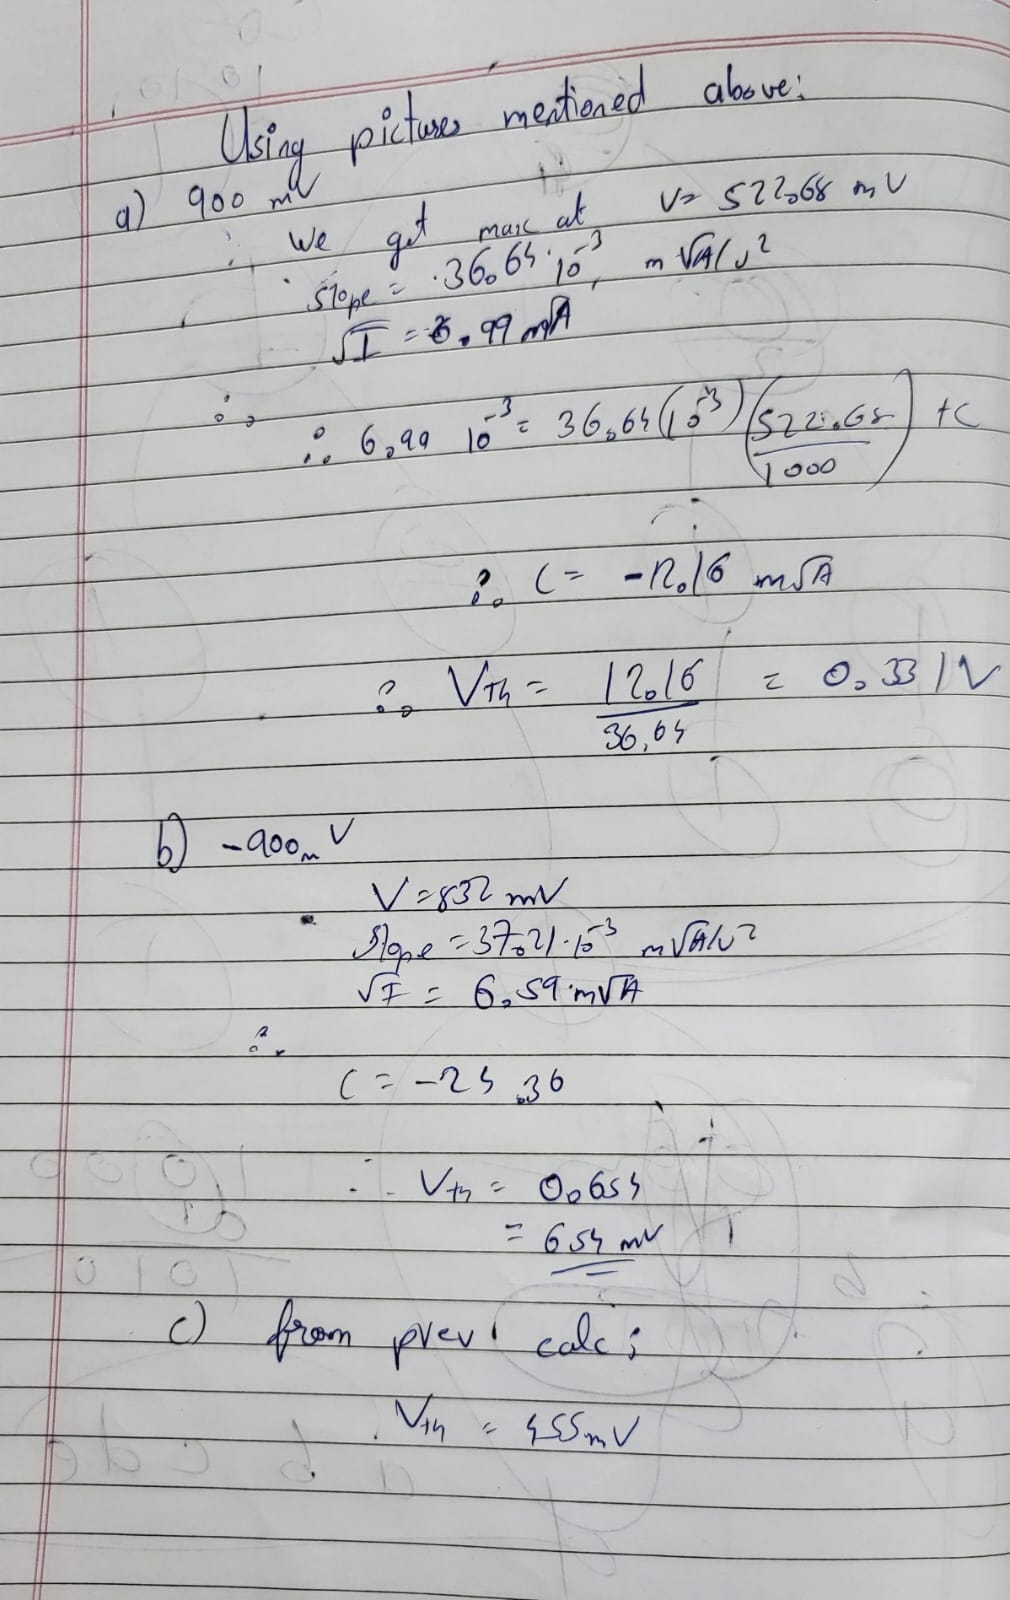 Using pictures mentioned above:
a) 900 mV
∴ We get max at V= 522.68 mV
slope = 36.64·10^-3, m√A/V²
√I = 6.99 m√A
∴ ∴ 6.99 10^-3 = 36.64(10^-3)(522.68/1000) +C
∴ C = -12.16 m√A
∴ VTh = 12.16/36.64 = 0.331V
b) -900mV
V=832 mV
slope = 37.21·10^-3 m√A/V²
√I = 6.59·m√A
∴
C = -24.36
∴ Vth = 0.654
= 654 mV
c) from prev calc:
Vth = 455mV